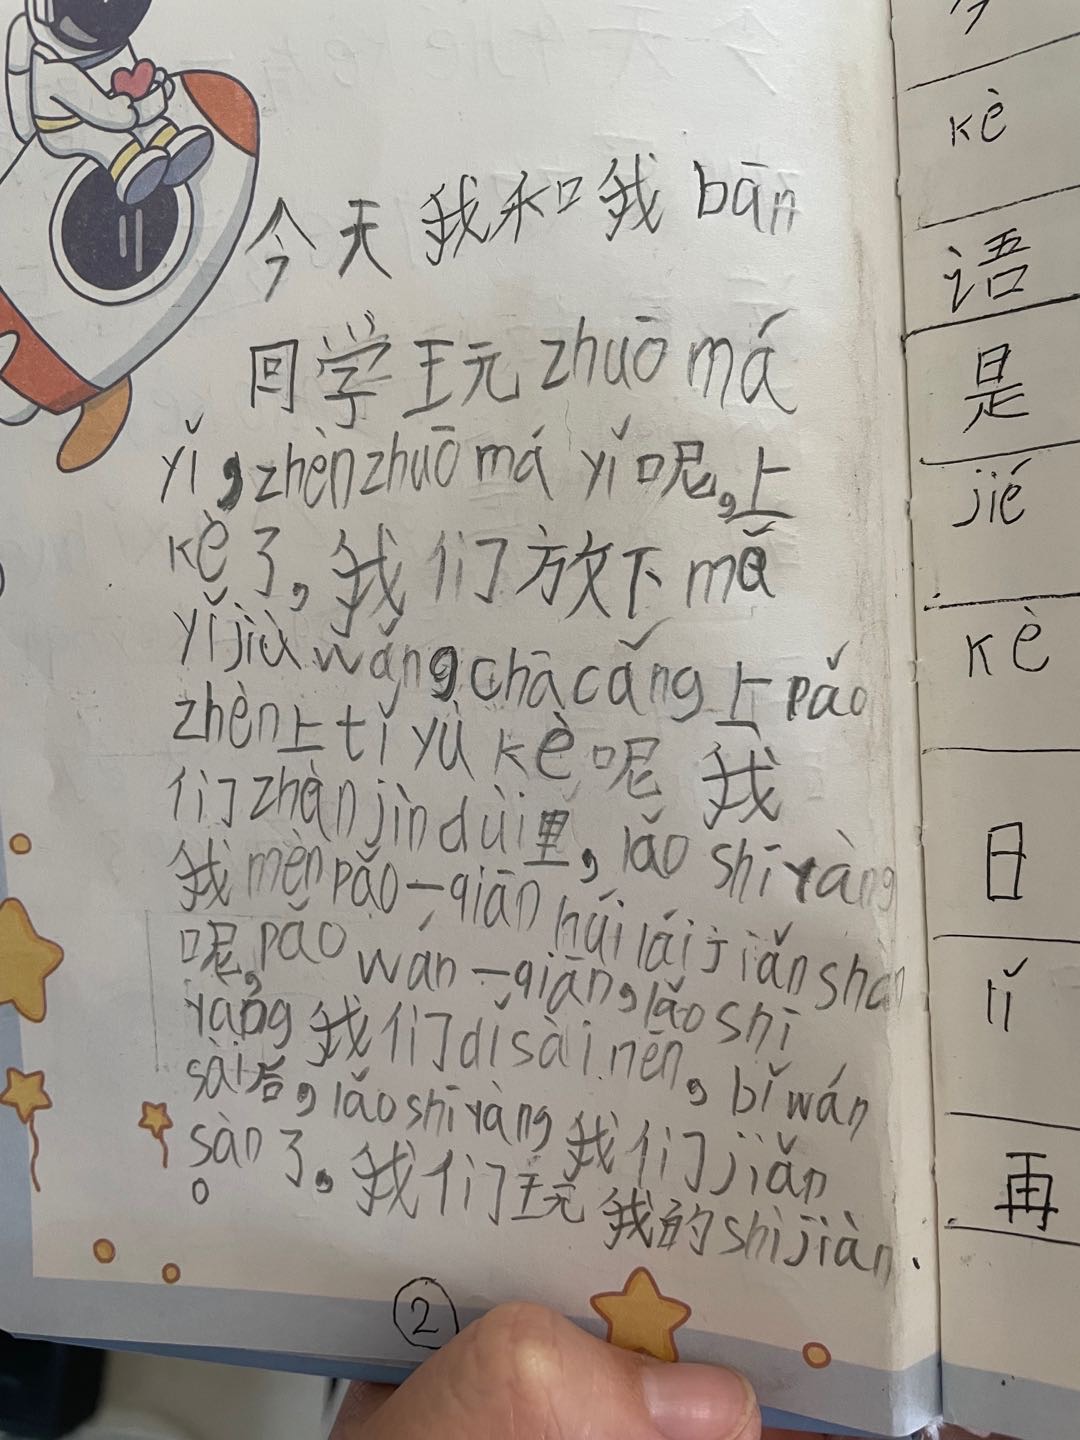 今天我和我bān
同学王元zhuō má
yǐ,zhènzhuō má yǐ呢,上
kè了,我们放下mǎ
yǐjiù wǎng chā cǎng上pǎo
zhèn上tǐ yù kè呢 我
们zhàn jìn duì里,lǎo shī ràng
我mèn pǎo一qiān húi lái jiǎn shan
呢,pǎo wán一qiān,lǎo shī
rang我们dǐ sài nēn,bǐ wán
sài后,lǎo shī ràng我们jiǎn
sàn了。我们王元我的shì jiàn
。
2
kè
语
是
jié
kè
日
lǐ
再